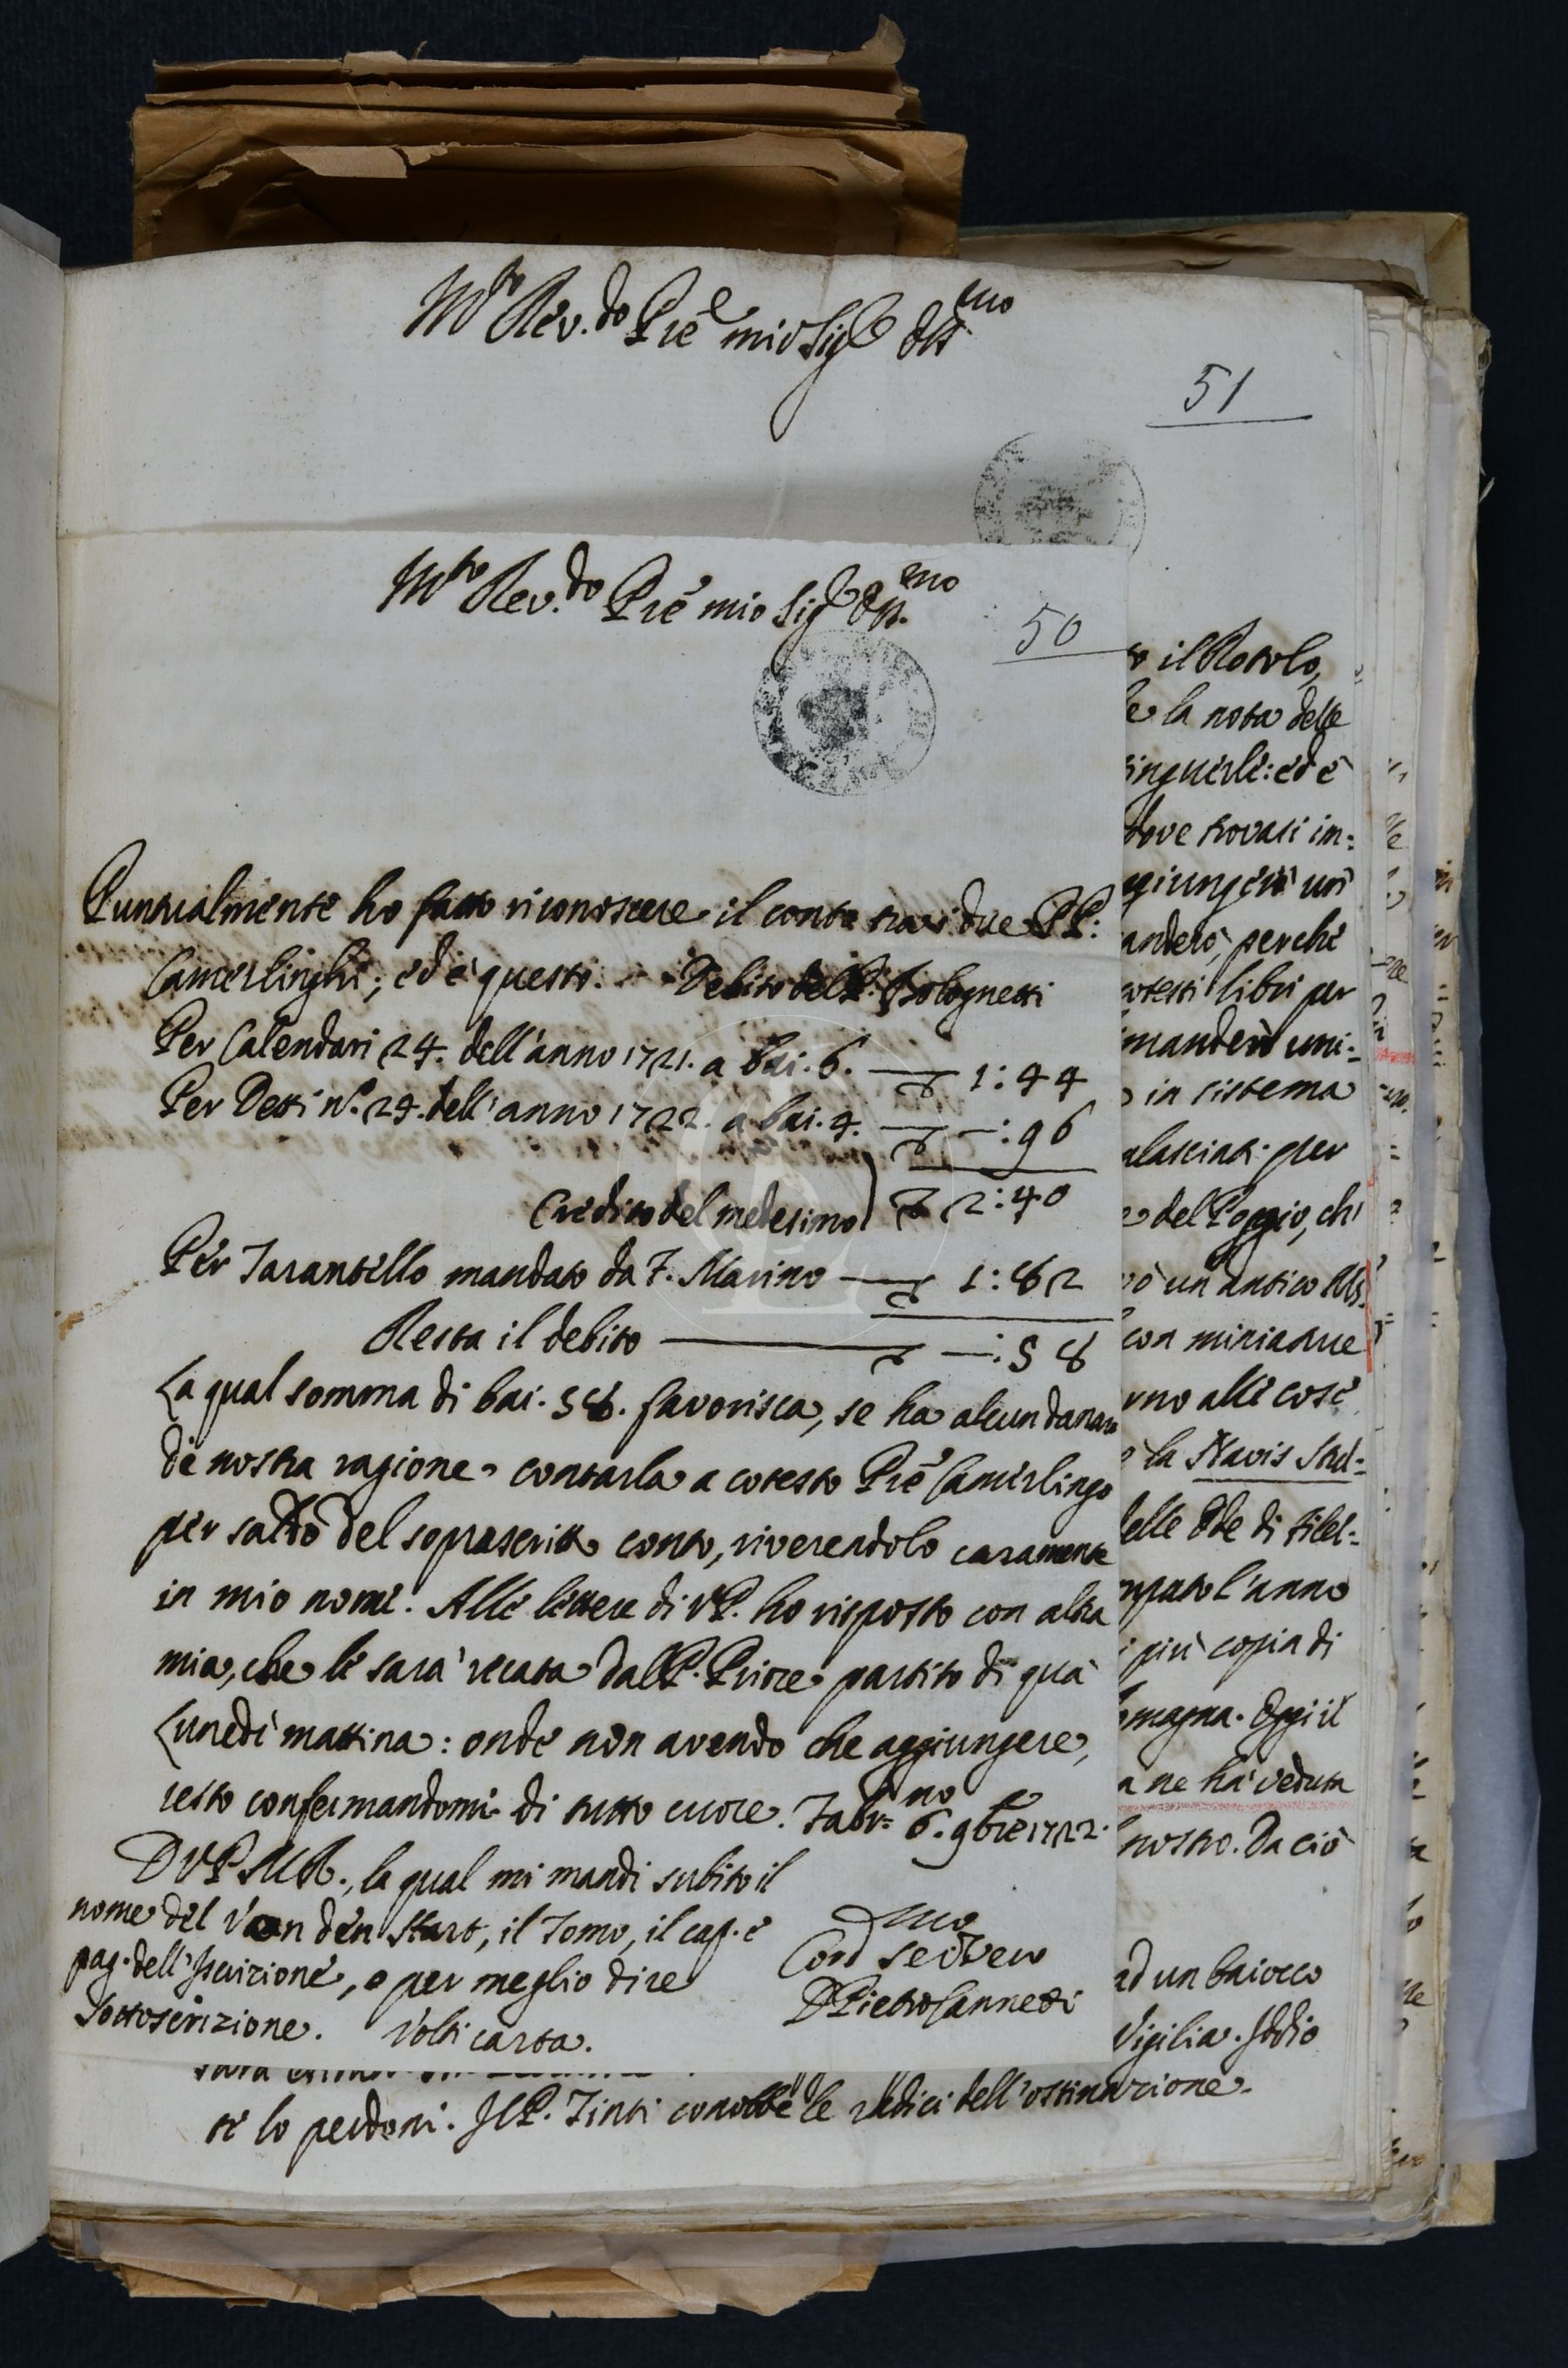 M.to Rev.do Prē mio Sig.e Oss.mo
51
M.to Rev.do Prē mio Sig.e Oss.mo
50
Puntualmente ho fatto riconoscere il conto tra i due PP:
Camerlinghi; ed è questo. Debito del P. Bolognetti
Per Calendari 24. dell'anno 1721. a bai. 6. 1:44
Per Detti n.º 24. dell'anno 1722. a bai. 4. —:96
Credito del medesimo 2:40
Per Tarantello mandato da F. Marino 1:82
Resta il debito —:58
La qual somma di bai. 58. favorisca, se ha alcun danaro
di nostra ragione contarla a cotesto Prē Camerlingo
per saldo del soprascritto conto, riverendolo caramente
in mio nome. Alle lettere di V.P. ho risposto con altra
mia, che le sarà recata dal P. Priore partito di quà
Lunedì mattina: onde non avendo che aggiungere,
resto confermandomi di tutto cuore. Fabr.no 6. 9bre 1722.
D V P M R., la qual mi mandi subito il
nome del Van den Start, il Tomo, il cap. e
pag. dell'Iscrizione, o per meglio dire
Sottoscrizione. Volti carta.
D. Pietro Cannetti
il Rotolo,
la nota delle
inguerle: ed è
dove trovasi im=
giungerà un
anderò, perchè
cotesti libri per
manderò uni=
in sistema
alasciati per
del Poggio, ch'
un antico Ms.
con miniature
rno alle cose
la Navis Stul=
delle Ode di Filel=
mpato l'anno
più copia di
omagna. Oggi il
a ne hà veduta
nostro. Da ciò
ad un baiocco
Vigilia. Iddio
te lo perdoni. Il P. Tinti conobbe le radici dell'ostinazione.